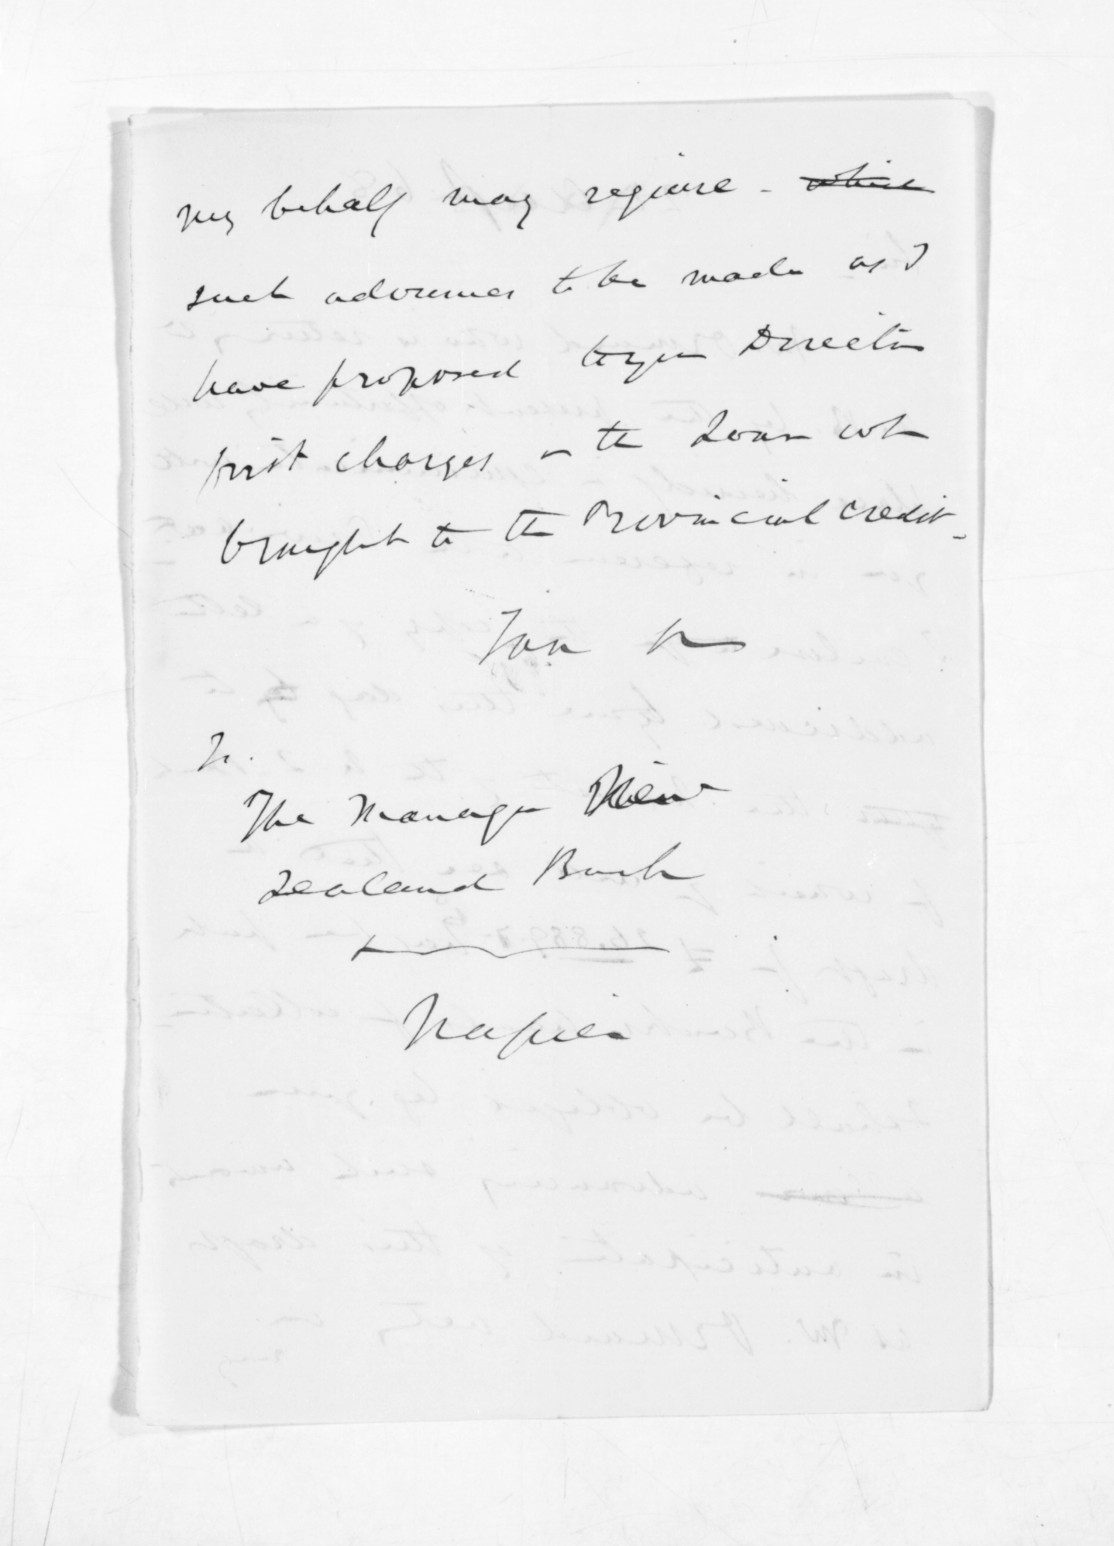 my behalf may require - which
such advances to be made as I
have proposed to your Directors
first charges on the Loan when
brought to the Provincial credit -
I am
To.
The Manager New
Zealand Bank
Napier